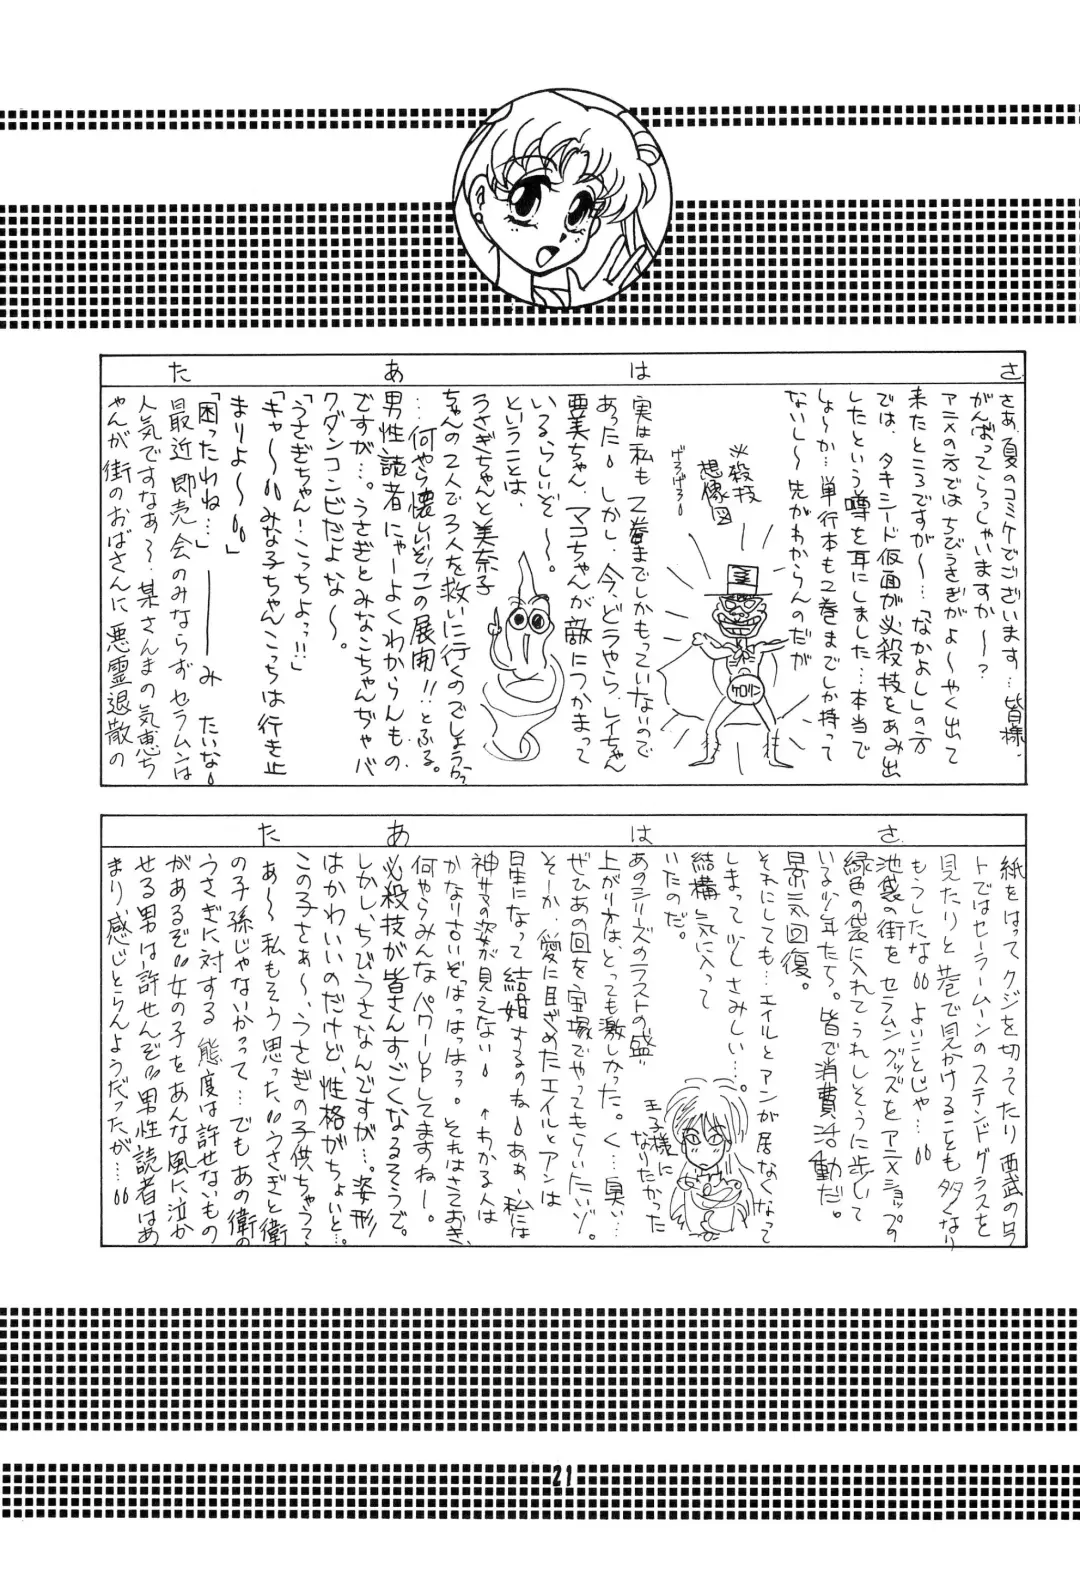 さ　は　あ　た
さあ、夏のコミケでございます…皆様、
がんばってらっしゃいますか〜?
アニメの方ではちびうさぎがよ〜やく出て
来たところですが〜…「なかよし」の方
では、タキシード仮面が必殺技をあみ出
したという噂を耳にしました…本当で
しょ〜か…単行本も2巻までしか持って
ないし〜先がわからんのだが
必殺技
想像図
げろげろ
ケロリン
実は私も2巻までしかもっていないので
あった。しかし、今、どうやら、レイちゃん
亜美ちゃん、マコちゃんが敵につかまって
いるらしいぞ〜。
ということは、
うさぎちゃんと美奈子
ちゃんの2人で3人を救いに行くのでしょうか?
…何やら懐しいぞこの展開!!とふる。
男性読者にゃーよくわからんもの
ですが…。うさぎとみなこちゃんぢゃバ
クダンコンビだよな〜。
「うさぎちゃん!こっちよっ!!」
「キャ〜〜みな子ちゃんこっちは行き止
まりよ〜〜」
「困ったわね…」――みたいな。
最近即売会のみならずセラムンは
人気ですなあ〜某さんまの気恵ち
ゃんが街のおばさんに悪霊退散の
さ　は　あ　た
紙をはってクジを切ってたり西武の包
トではセーラームーンのステンドグラスを
見たりと巷で見かけることも多くなり
もうしたな よいことじゃ…
池袋の街をセラムングッズをアニメショップの
緑色の袋に入れてうれしそうに歩して
いる少年たち。皆で消費活動だ。
景気回復。
それにしても…エイルとアンが居なくなって
しまって少しさみしい…。
結構気に入って
いたのだ。
王子様に
なりたかった
あのシリーズのラストの盛
上がり方は、とっても激しかった。く…臭い…
ぜひあの回を宝塚でやってもらいたいゾ。
そーか、愛に目ざめたエイルとアンは
星になって結婚するのね。あぁ、私には
神サマの姿が見えない。↑わかる人は
かなり古いぞ はっはっはっ。それはさておき、
何やらみんなパワーUPしてますねー。
必殺技が皆さんすごくなるそうで。
しかし、ちびうさなんですが…。姿形
はかわいいのだけど、性格がちょいと…。
この子さぁ〜、うさぎの子供ちゃう?
あ〜〜私もそう思った、うさぎと衛
の子孫じゃないかって…でもあの衛の
うさぎに対する態度は許せないもの
があるぞ 女の子をあんな風に泣か
せる男は許せんぞ 男性読者はあ
まり感じとらんようだったが…。
21